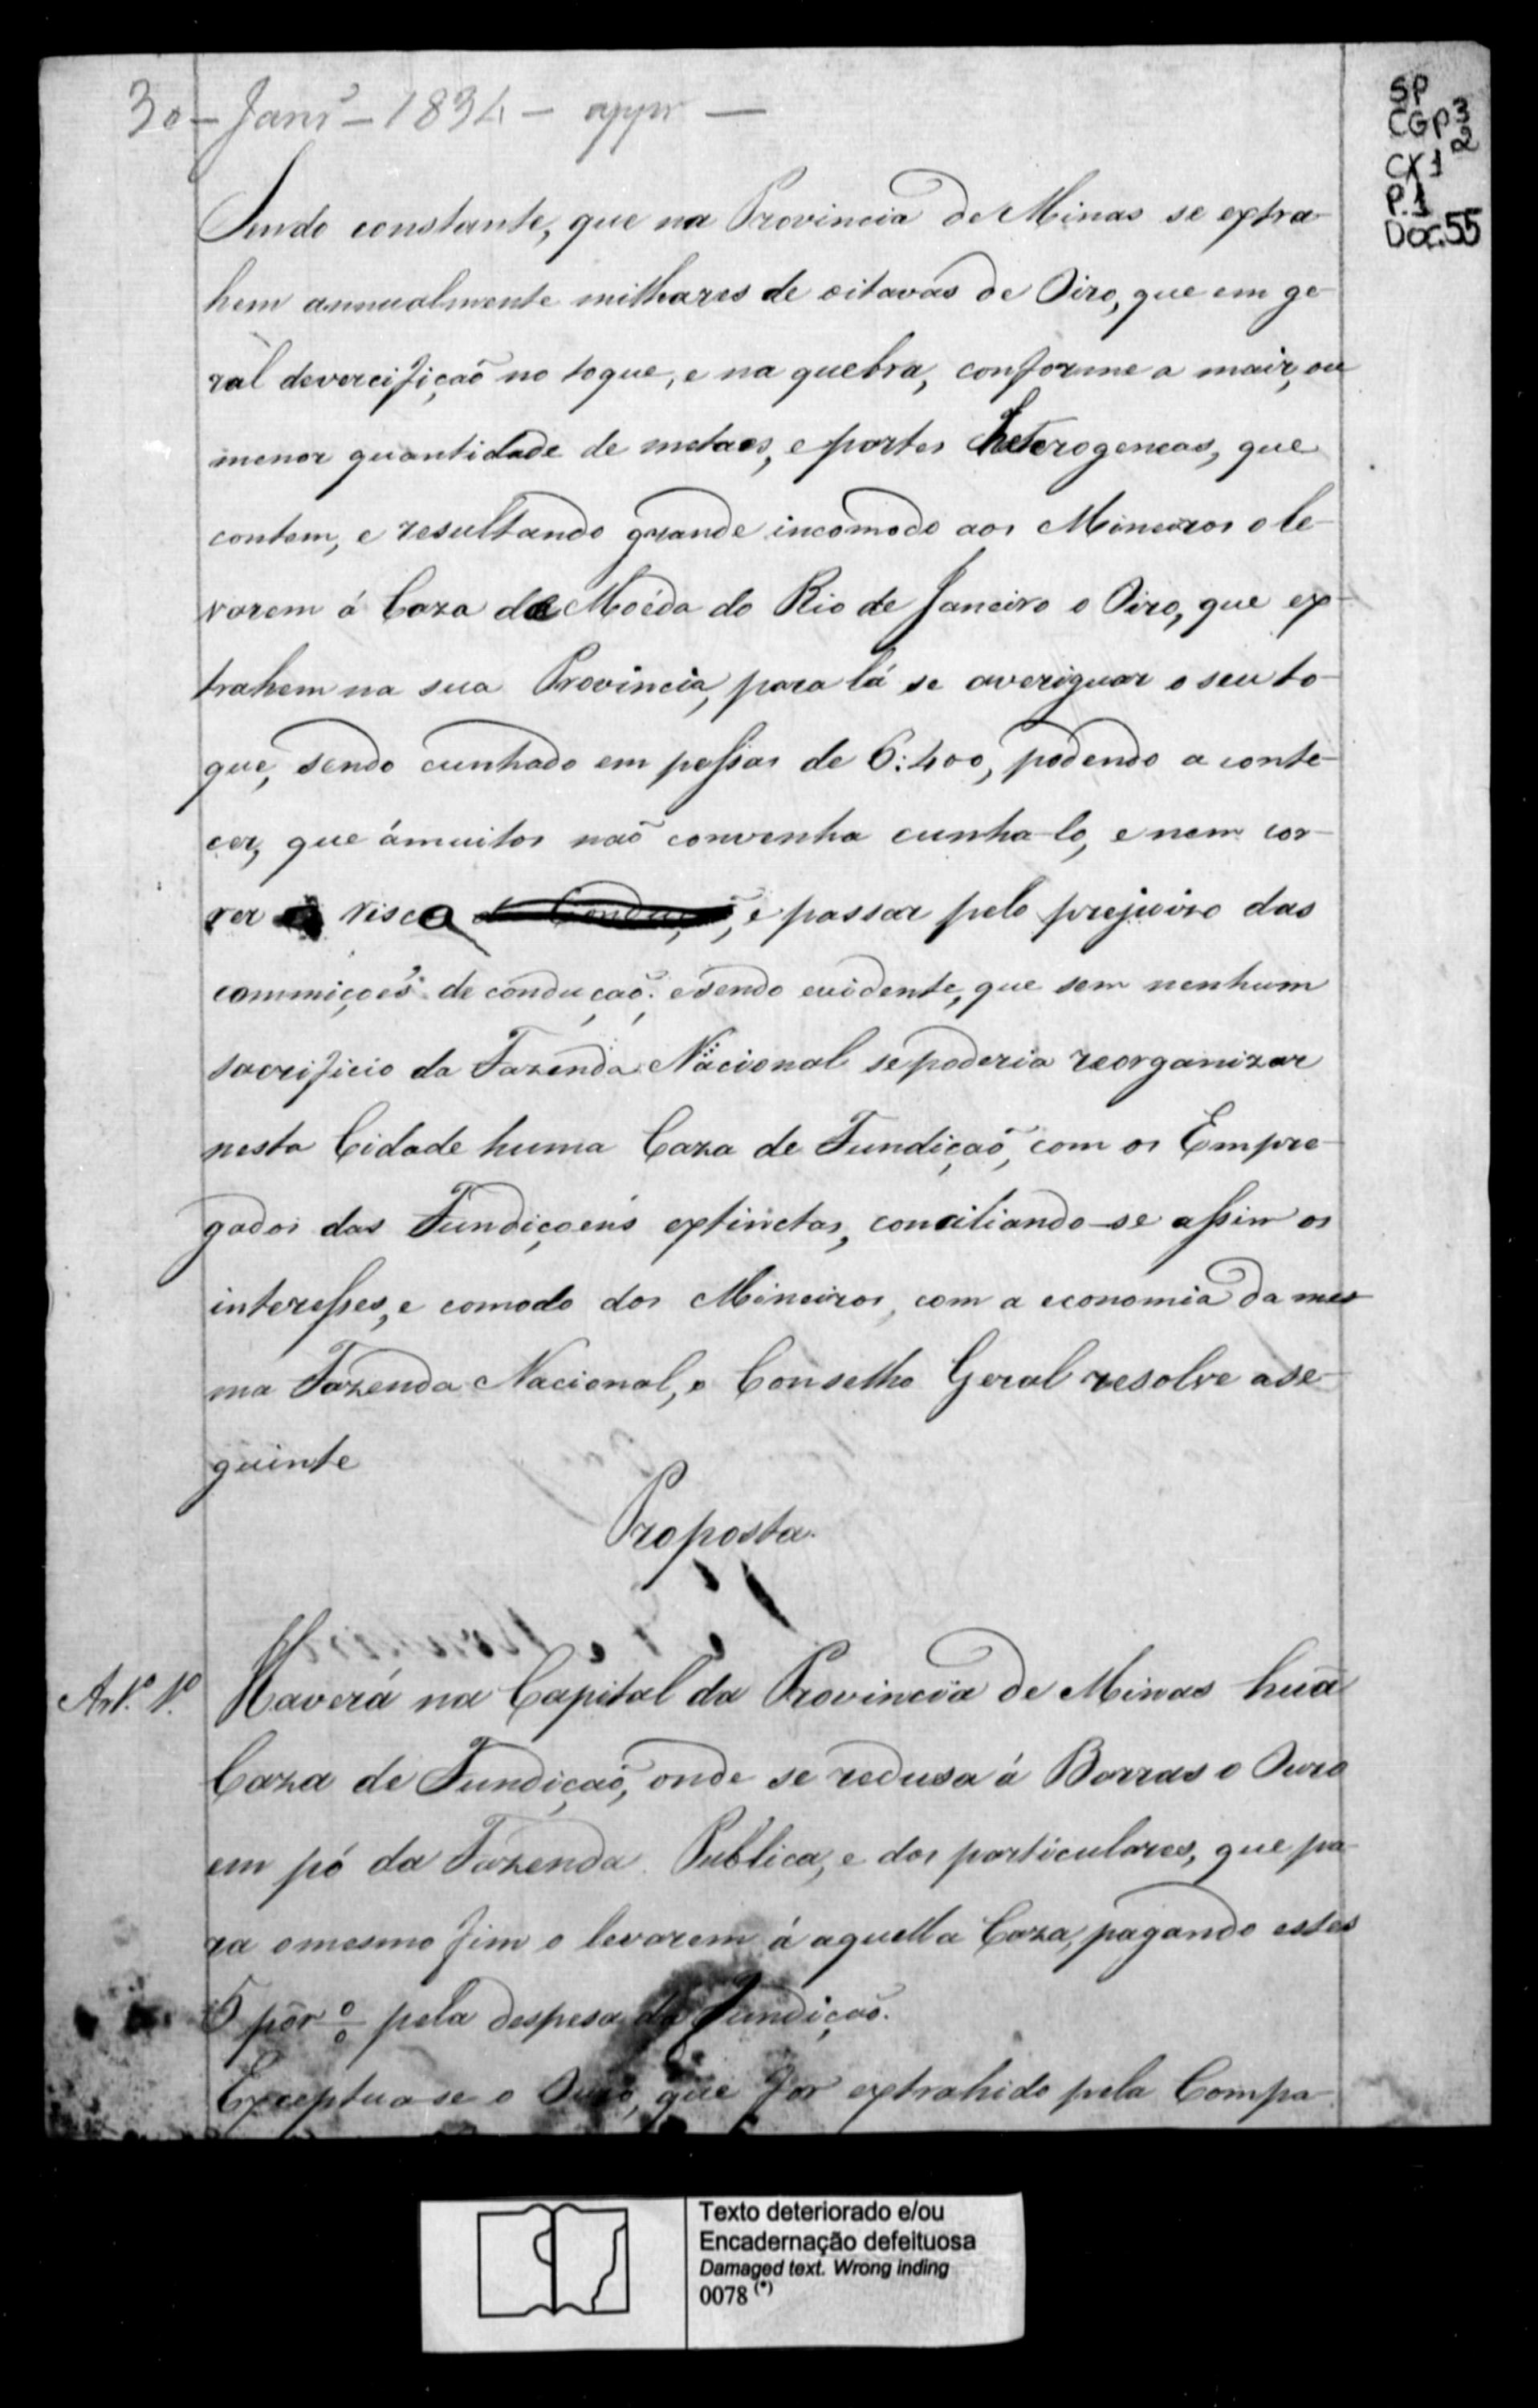 30 - Janrº - 1834 - appr -
SP
CGP3
CX1 2
P.1
Doc.55
Sendo constante, que na Provincia de Minas se extra-
hem annualmente milhares de oitavas de Oiro, que em ge-
ral devercifição no toque, e na quebra, conforme a maior, ou
menor quantidade de metaes, e partes heterogeneas, que
contem, e resultando grande incomodo aos Mineiros o le-
varem á Caza da Moéda do Rio de Janeiro o Oiro, que ex-
trahem na sua Provincia, para lá se averiguar o seu to-
que, sendo cunhado em pessas de 6:400, podendo a conte-
cer, que ámuitos naõ convenha cunha-lo, e nem cor-
rer risco, e passar pelo prejuizo das
commiçoẽs de conduçaõ; e sendo evidente, que sem nenhum
sacrificio da Fazenda Nacional se poderia reorganizar
nesta Cidade huma Caza de Fundiçaõ, com os Empre-
gados das Fundiçoens extinctas, conciliando-se assim os
interesses, e comodo dos Mineiros, com a economia da mes-
ma Fazenda Nacional, o Conselho Geral resolve a se-
guinte
Proposta.
Art.º 1.º Haverá na Capital da Provincia de Minas huã
Caza de Fundiçaõ, onde se redusa á Barras o Ouro
em pó da Fazenda Publica, e dos particulares, que pa-
ra o mesmo fim o levarem á aquella Caza, pagando estes
5 por % pela despesa da Fundiçaõ.
Exceptua-se o Ouro, que for extrahido pela Compa-
Texto deteriorado e/ou
Encadernação defeituosa
Damaged text. Wrong inding
0078 (*)